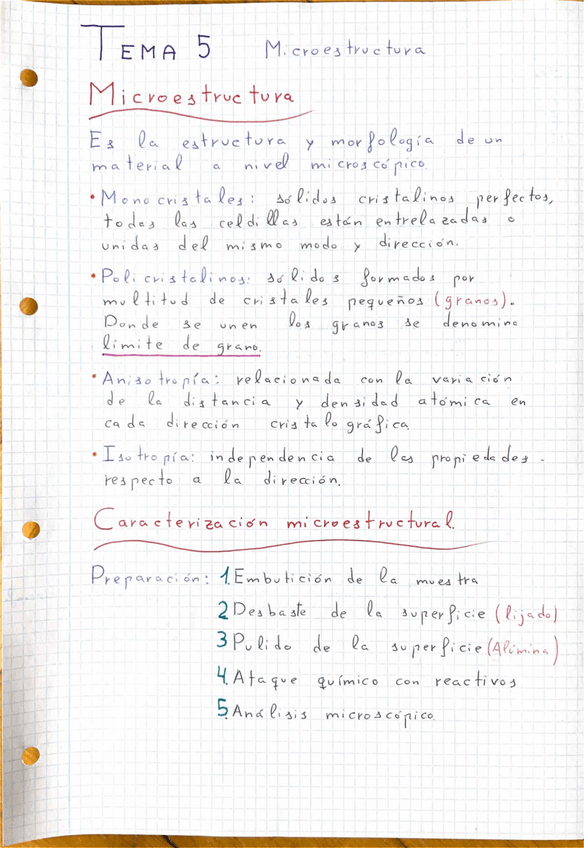 TEMA 5 Microestructura
Microestructura
Es la estructura y morfología de un
material a nivel microscópico.
• Monocristales: sólidos cristalinos perfectos,
todas las celdillas están entrelazadas o
unidas del mismo modo y dirección.
• Policristalinos: sólidos formados por
multitud de cristales pequeños (granos).
Donde se unen los granos se denomina
límite de grano.
• Anisotropía: relacionada con la variación
de la distancia y densidad atómica en
cada dirección cristalográfica
• Isotropía: independencia de las propiedades
respecto a la dirección.
Caracterización microestructural.
Preparación: 1. Embutición de la muestra
2 Desbaste de la superficie (lijado)
3 Pulido de la superficie (Alúmina)
4. Ataque químico con reactivos
5. Análisis microscópico.